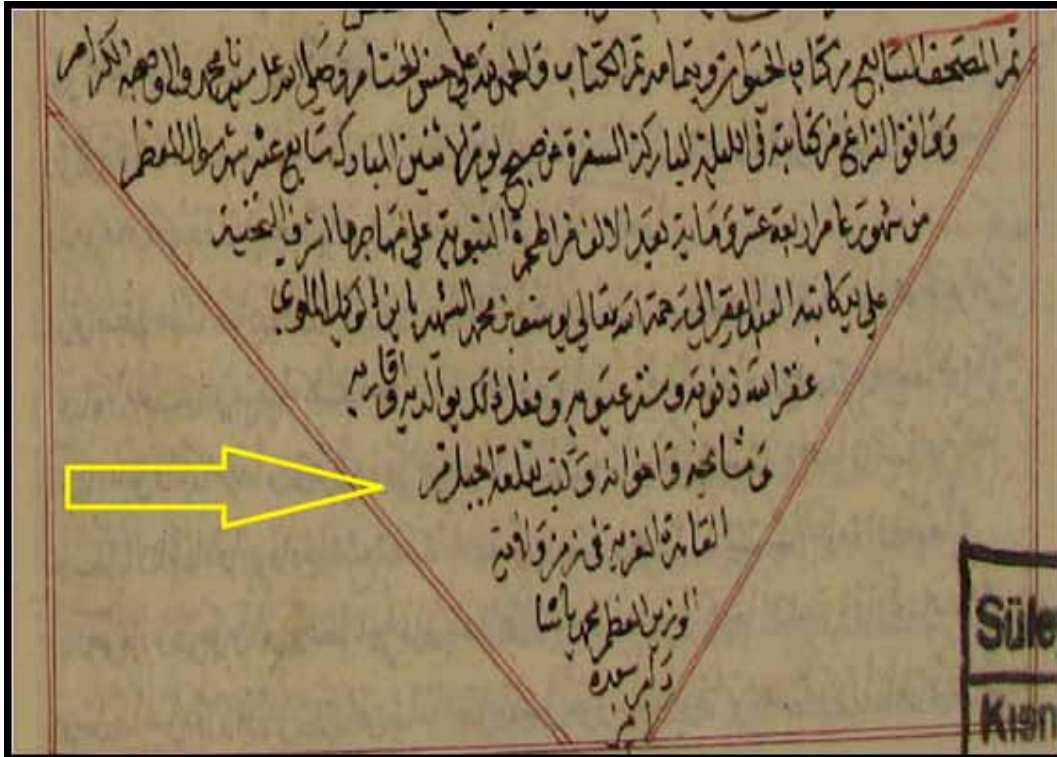 تم المصحف السابع من كتاب الحيوان وبتمامه تم الكتاب والحمد لله على حسن الختام وصلى الله على سيدنا محمد واله وصحبه الكرام
ووافق الفراغ من كتابته في الليلة المباركة المسفرة عن صبيح يوم الاثنين المبارك سابع عشر شهر شوال المعظم
من شهور عام اربعة عشر وماية بعد الالف من الهجرة النبوية على مهاجرها اشرف التحية
على يد كاتبه العبد الفقير الى رحمة الله تعالى يوسف بن محمد الشهير بابن الوكيل الملوي
غفر الله ذنوبه وستر عيوبه وفعل ذلك بوالديه واقاربه
ومشايخه واخوانه وكتب بقلعة الجبل من
القاهرة المعزية في زمن ولاية
الوزير المعظم محمد باشا
دام سعده
امين
Süle
Kısm